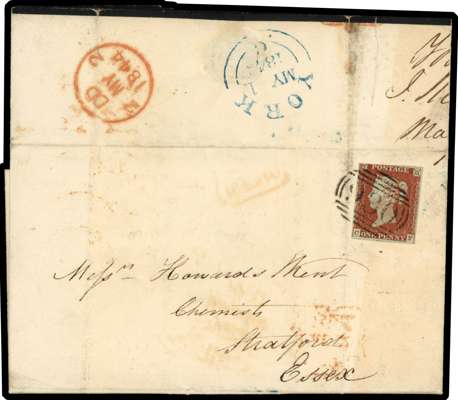 DD
MY 2
1844
YORK
MY 1
184
POSTAGE
ONE PENNY
Messrs Howards & Kent
Chemists
Stratford
Essex